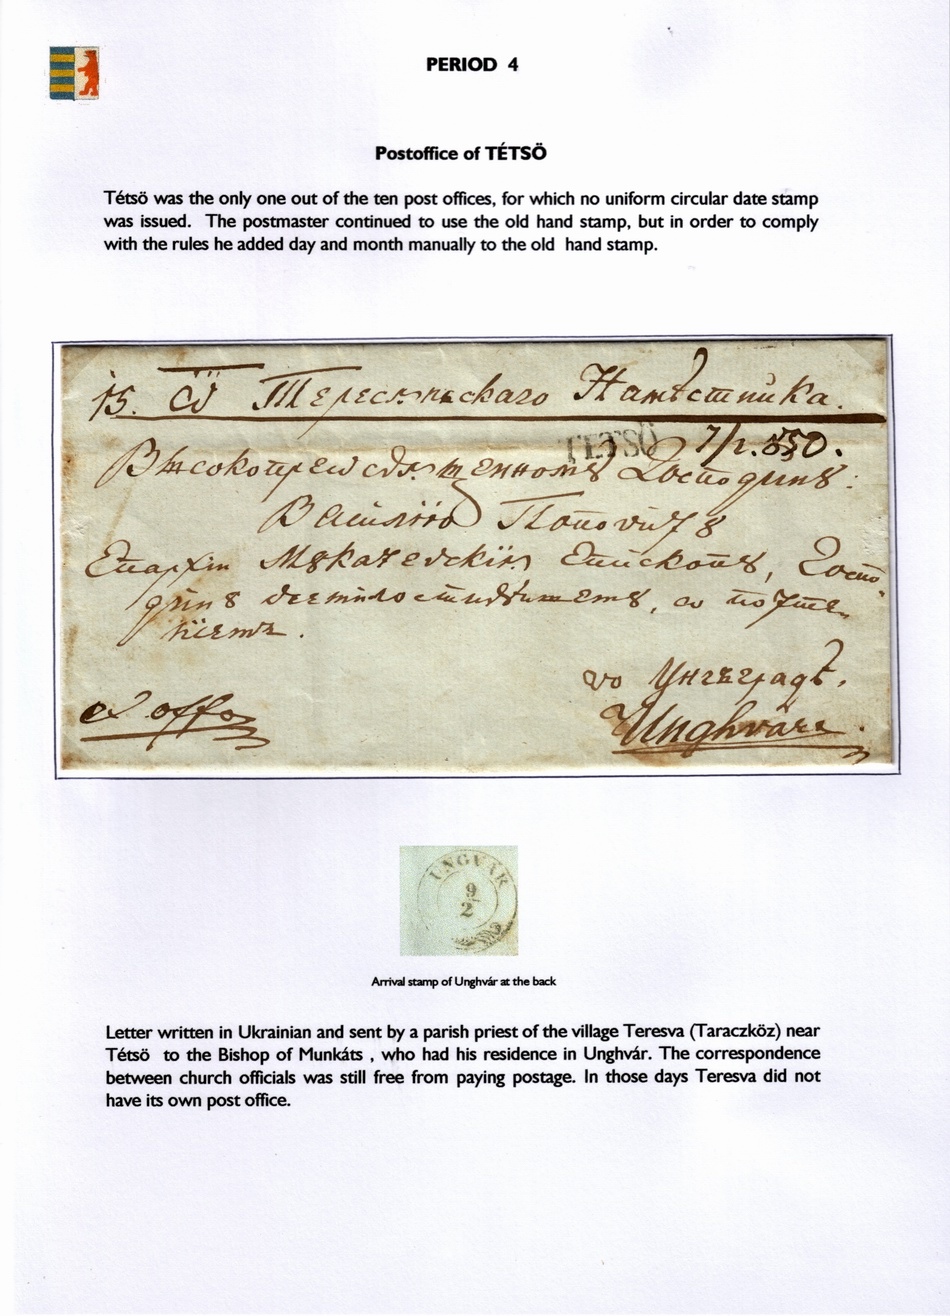 PERIOD 4
Postoffice of TÉTSÖ
Tétsö was the only one out of the ten post offices, for which no uniform circular date stamp
was issued. The postmaster continued to use the old hand stamp, but in order to comply
with the rules he added day and month manually to the old hand stamp.
15. Ѿ Намѣстника.
TÉTSÖ 7/2. 850.
Господинꙋ:
Василїю Поповичꙋ
Мꙋкачевскїѧ Епископꙋ, Госпо
динꙋ
во Унгъградѣ.
ex offo Unghvárr.
UNGVÁR
9
2
Arrival stamp of Unghvár at the back
Letter written in Ukrainian and sent by a parish priest of the village Teresva (Taraczköz) near
Tétsö to the Bishop of Munkáts , who had his residence in Unghvár. The correspondence
between church officials was still free from paying postage. In those days Teresva did not
have its own post office.